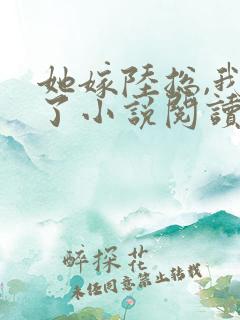 她嫁陸總,我
了小説閱讀
醉探花
未经同意禁止转载